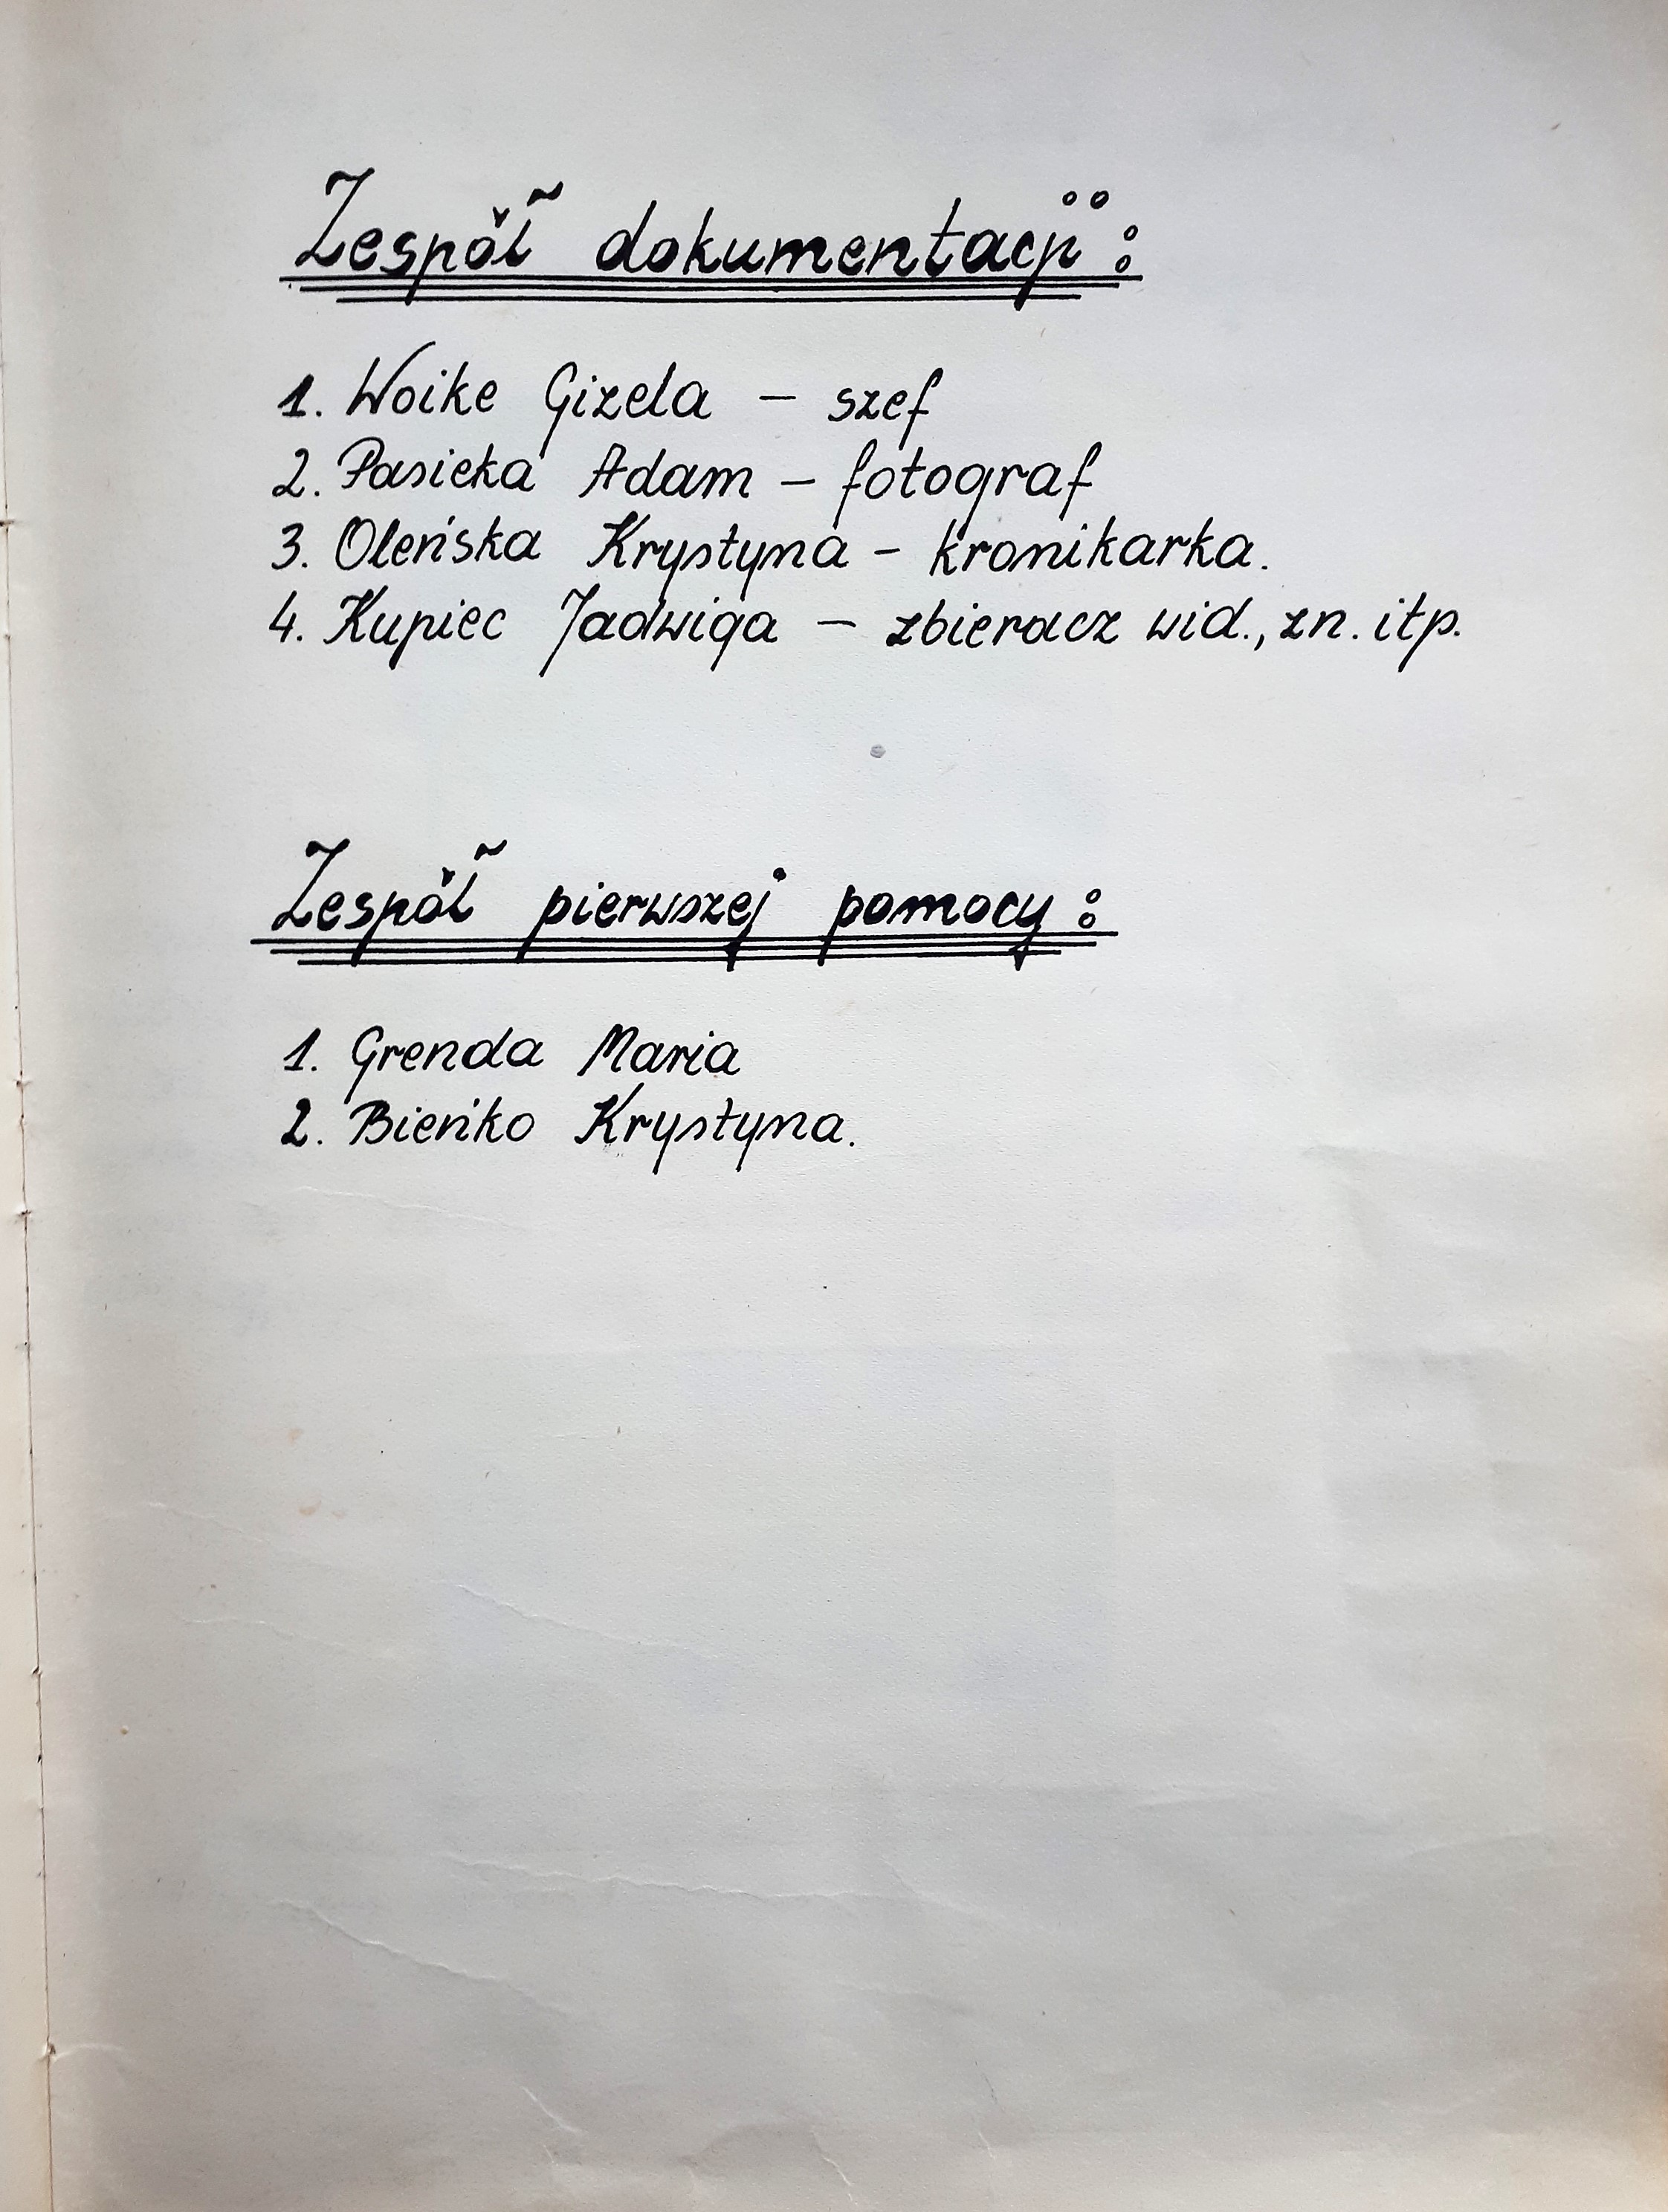 Zespół dokumentacji:
1. Woike Gizela – szef
2. Pasieka Adam – fotograf
3. Oleńska Krystyna – kronikarka.
4. Kupiec Jadwiga – zbieracz wid., zn. itp.
Zespół pierwszej pomocy:
1. Grenda Maria
2. Bieńko Krystyna.